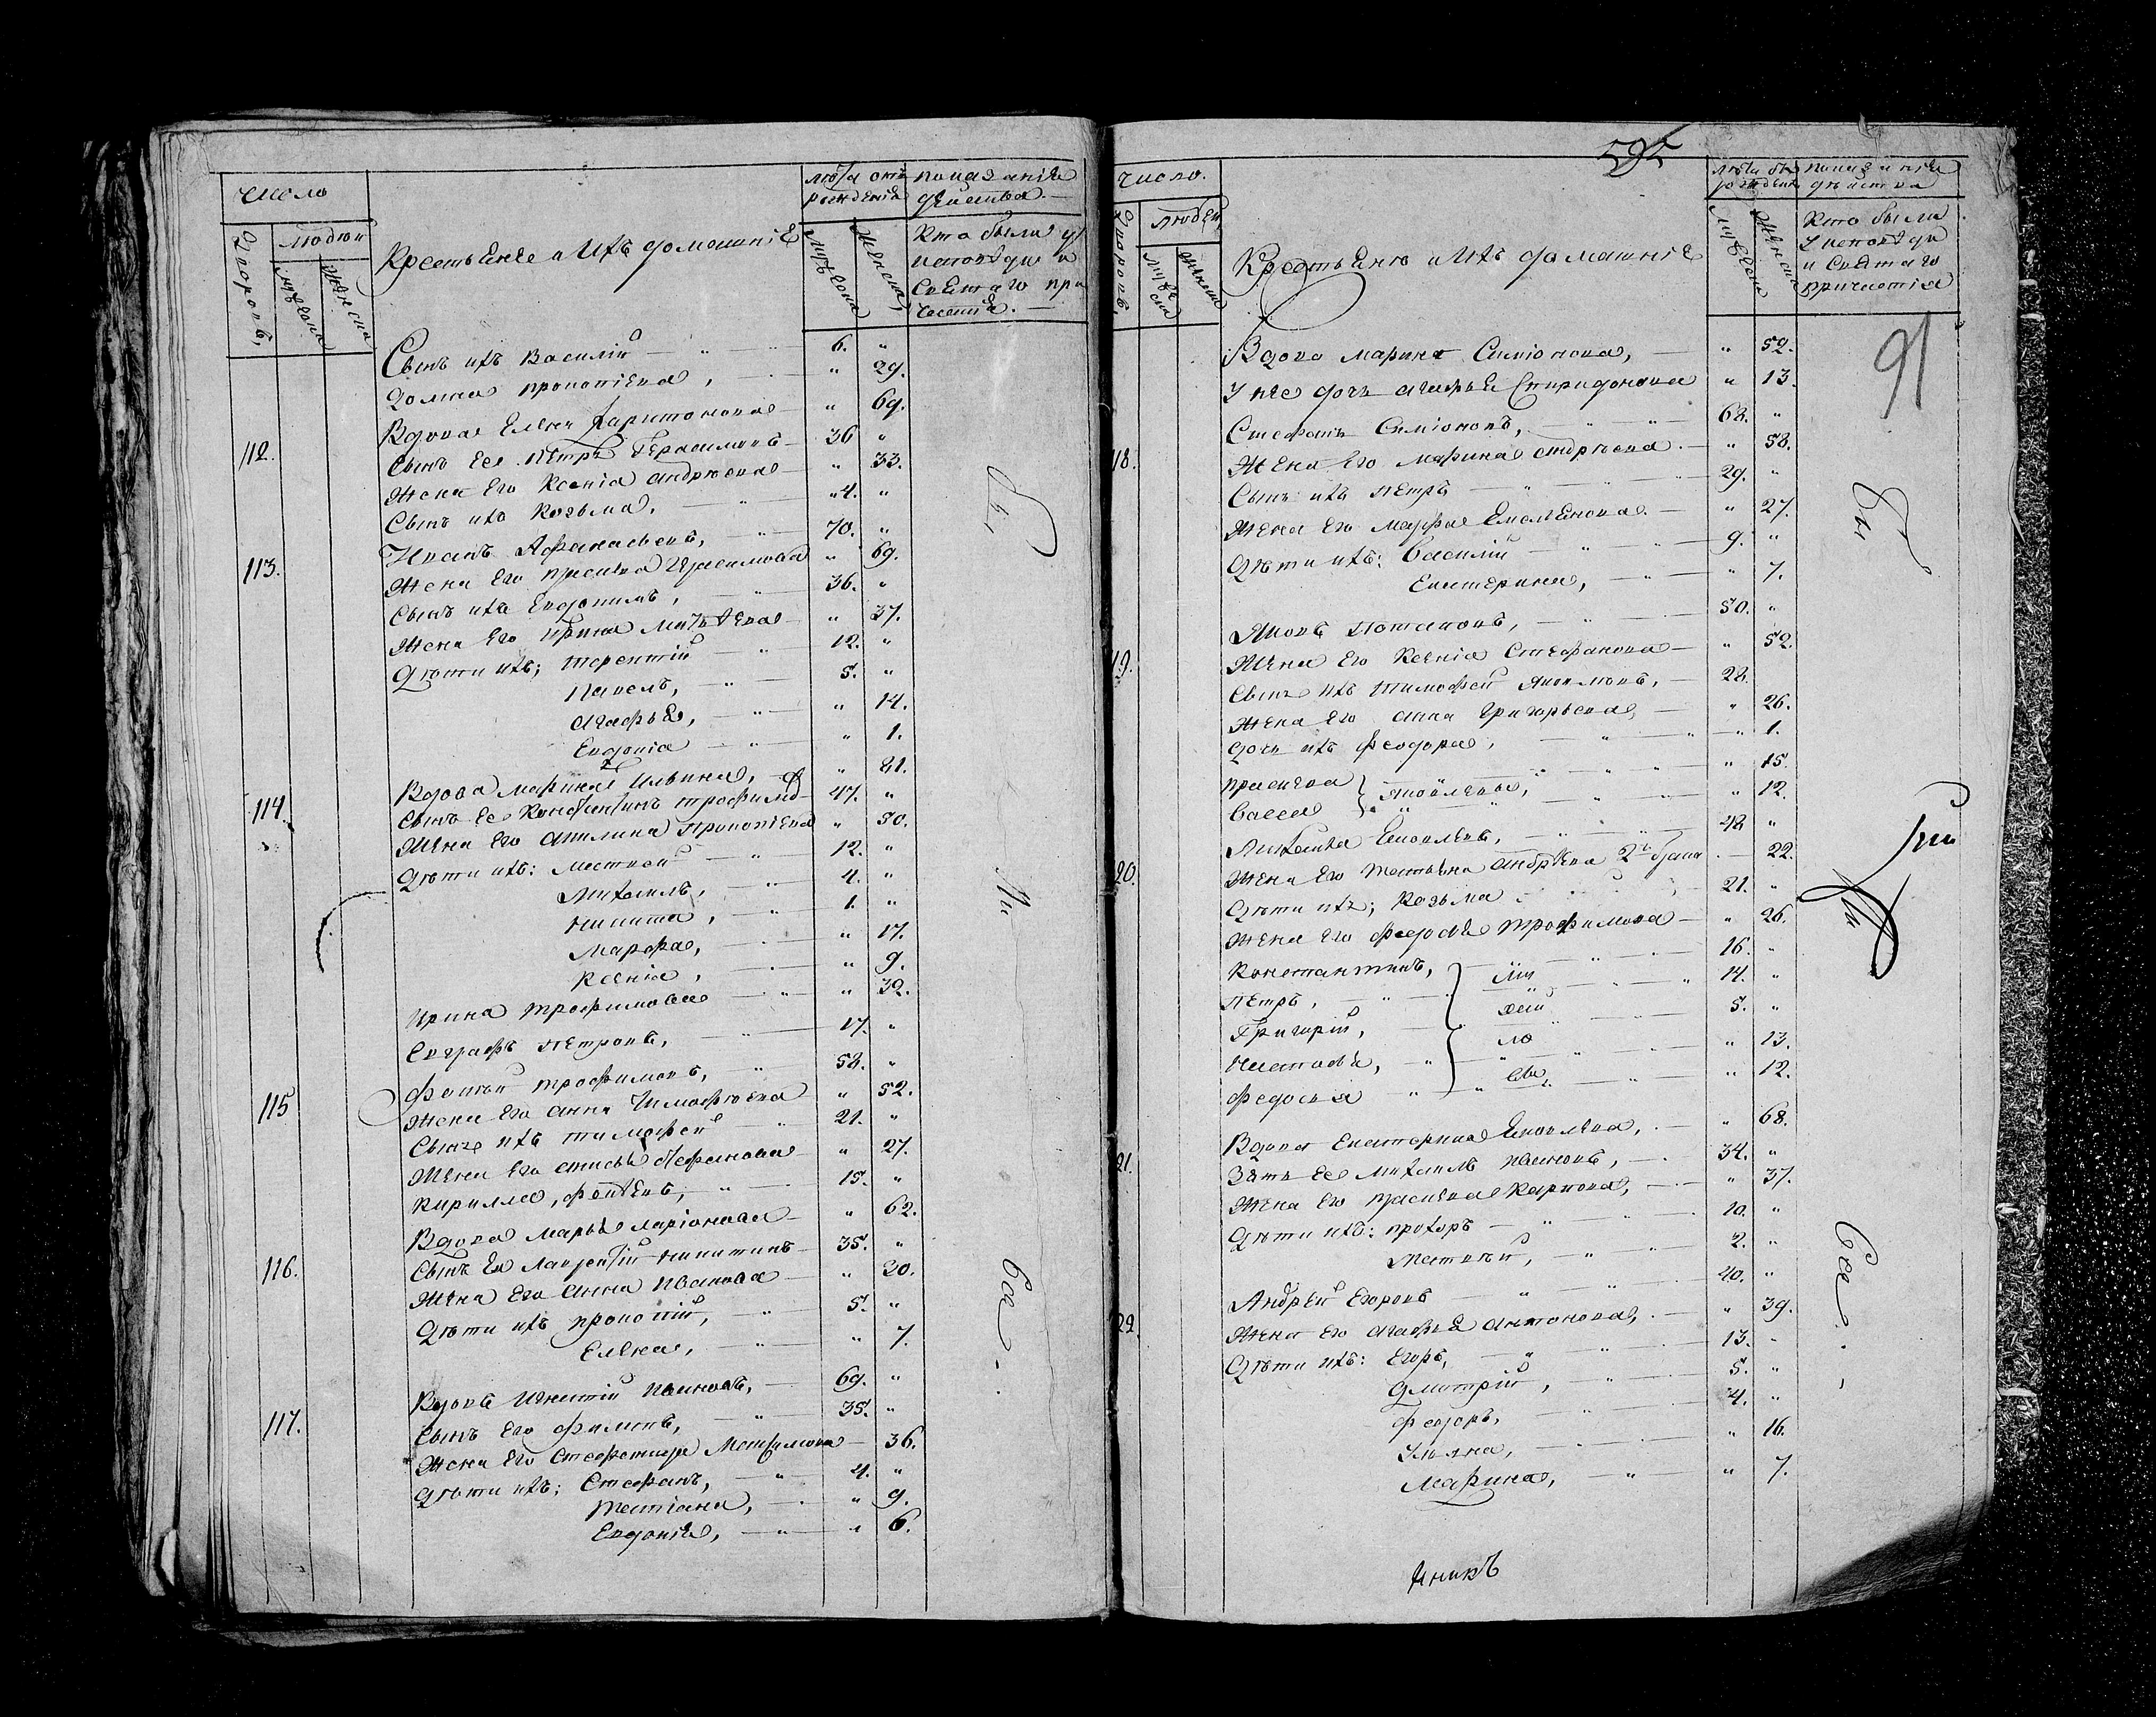 число
Дворовъ, людей
мужеска женска
Крестьяне и Ихъ домашніе
лѣта отъ рожденія
мужеска женска,
показаніе действа. —
Кто были у исповѣди и Святаго при
Сынъ ихъ Василій — 6. "
Домна прокопіева, — " 29.
112. Вдова Елена Харитонова — " 69.
Сынъ Ее Петръ Герасимовъ — 36 "
Жена Его Ксенія андрюева — " 33.
Сынъ ихъ Козьма, — "4. "
113. Иванъ Афанасьевъ, — 70. "
Жена Его праскева Герасимова " 69.
Сынъ ихъ Евдокимъ, — 36. "
Жена Его Ирина Матвѣева — " 37.
Дѣти ихъ; терентій — 12. "
Павелъ, — 5. "
агафья, — " 14.
Евдокіа — " 1.
114. Вдова Марина Ильина, — " 81.
Сынъ Ее Константинъ трофимо— 47. "
Жена Его акилина прокопіева " 50.
Дѣти ихъ: матвей — 12. "
Михаилъ, — 4. "
никита, — 1. "
Марфа, — " 17.
Ксенія, — " 9.
Ирина трофимова — " 32.
Евграфъ петровъ, — 17. "
115 фотій трофимовъ, — 58. "
Жена Его анна тимофеева " 52.
Сынъ ихъ тимофей " 21. "
Жена Его Стефанова — " 27.
Кирилла, фотѣевъ, — 15. "
116. Вдова Марья ларіонова — " 62.
Сынъ Ея Лаврентій никитинъ — 35. "
Жена Его анна иванова — " 30.
Дѣти ихъ прокопій, — 5. "
Елена, — " 7.
117. Вдовъ Игнатій ивановъ, — 69. "
Сынъ Его филипъ, — 35. "
Жена Его Стефанида Максимова — 36.
Дѣти ихъ; Стефанъ, — 4. "
татіана, — " 9.
Евдокія, — " 6.
Бы
ли
Все.
595
91
число.
Дворовъ, людей,
мужеска женска
Крестьяне и Ихъ домашніе
лѣта отъ рожденія
мужеска женска
показаніе дѣйства
Кто были у исповѣди и Святаго причастія
Вдова марина Симіонова, — " 52.
У нее дочь агафья Спиридонова " 13.
18. Стефанъ Симіоновъ, — 68. "
Жена Его Марина андрюева. — " 58.
Сынъ ихъ петръ — 29. "
Жена Его Марфа Емельянова. — " 27.
Дѣти ихъ: Василій — 9. "
Екатерина, — " 7.
19. Яковъ потаповъ, — 50. "
Жена Его Ксенія Стефанова — " 52.
Сынъ ихъ тимофей яковлевъ, — 28.
Жена Его анна григорьева, — " 26.
дочь ихъ феодора, — " 1.
праскева } яковлевы, " 15.
Васса } " 12.
20. Яковлевъ, — 48 "
Жена Его татьяна андрѣева 2го брака — 22.
Дѣти ихъ; Козьма — 21. "
Жена Его федосья трофимова — " 26.
Константинъ, — 16. "
петръ, — 14. "
Григорій, — 5. "
настасья, — " 13.
федосья — " 12.
21. Вдова Екатерина Яковлева, — " 68.
Зять Ее михаилъ ивановъ, — 34. "
Жена Его праскева Карпова, — " 37.
Дѣти ихъ: прохоръ — 10. "
матвѣй, — 2. "
22. Андрей Егоровъ — 40. "
Жена Его агафья антонова, — " 39.
Дѣти ихъ: Егоръ, — 13. "
дмитрій, — 5. "
федоръ, — 4. "
Ульяна, — " 16.
Марина, — " 7.
Бы
ли
Все.
никъ